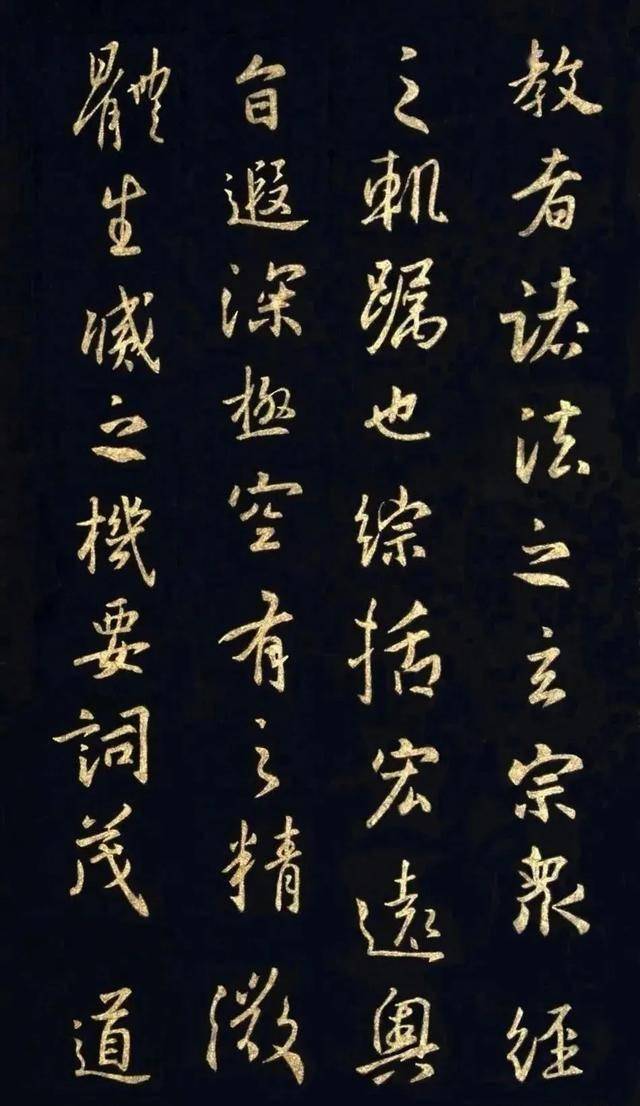 教者諸法之玄宗衆經
之軌躅也綜括宏遠奧
旨遐深極空有之精微
體生滅之機要詞茂道